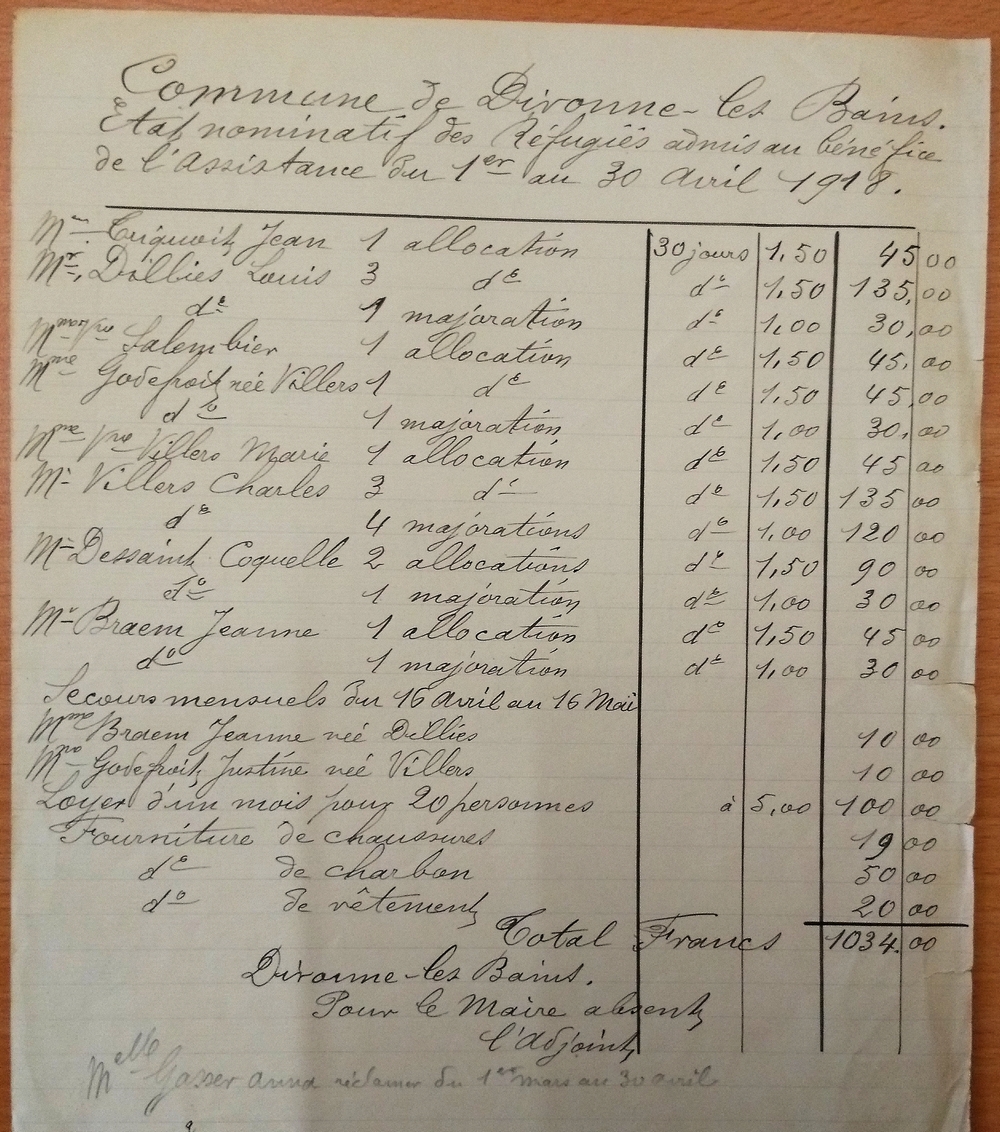 Commune de Divonne-les Bains.
Etat nominatif des Réfugiés admis au bénéfice
de l'Assistance du 1er au 30 Avril 1918.
Mr. Criquoit, Jean 1 allocation 30 jours 1,50 45 00
Mr. Dillies Louis 3 do do 1,50 135,00
do 1 majoration do 1,00 30,00
Mme Vve Salembier 1 allocation do 1,50 45,00
Mme Godefroit née Villers 1 do do 1,50 45,00
do 1 majoration do 1,00 30,00
Mme Vve Villers Marie 1 allocation do 1,50 45 00
Mr Villers Charles 3 do do 1,50 135 00
do 4 majorations do 1,00 120 00
Mr Dessaint Coquelle 2 allocations do 1,50 90 00
do 1 majoration do 1,00 30 00
Mr Braem Jeanne 1 allocation do 1,50 45 00
do 1 majoration do 1,00 30 00
Secours mensuels du 16 Avril au 16 Mai
Mme Braem Jeanne née Dillies 10 00
Mme Godefroit, Justine née Villers 10 00
Loyer d'un mois pour 20 personnes à 5,00 100 00
Fourniture de chaussures 19 00
do de charbon 50 00
do de vêtements 20 00
Total Francs 1034.00
Divonne-les Bains.
Pour le Maire absent,
l'adjoint,
Melle Gasser anna réclamer du 1er mars au 30 avril